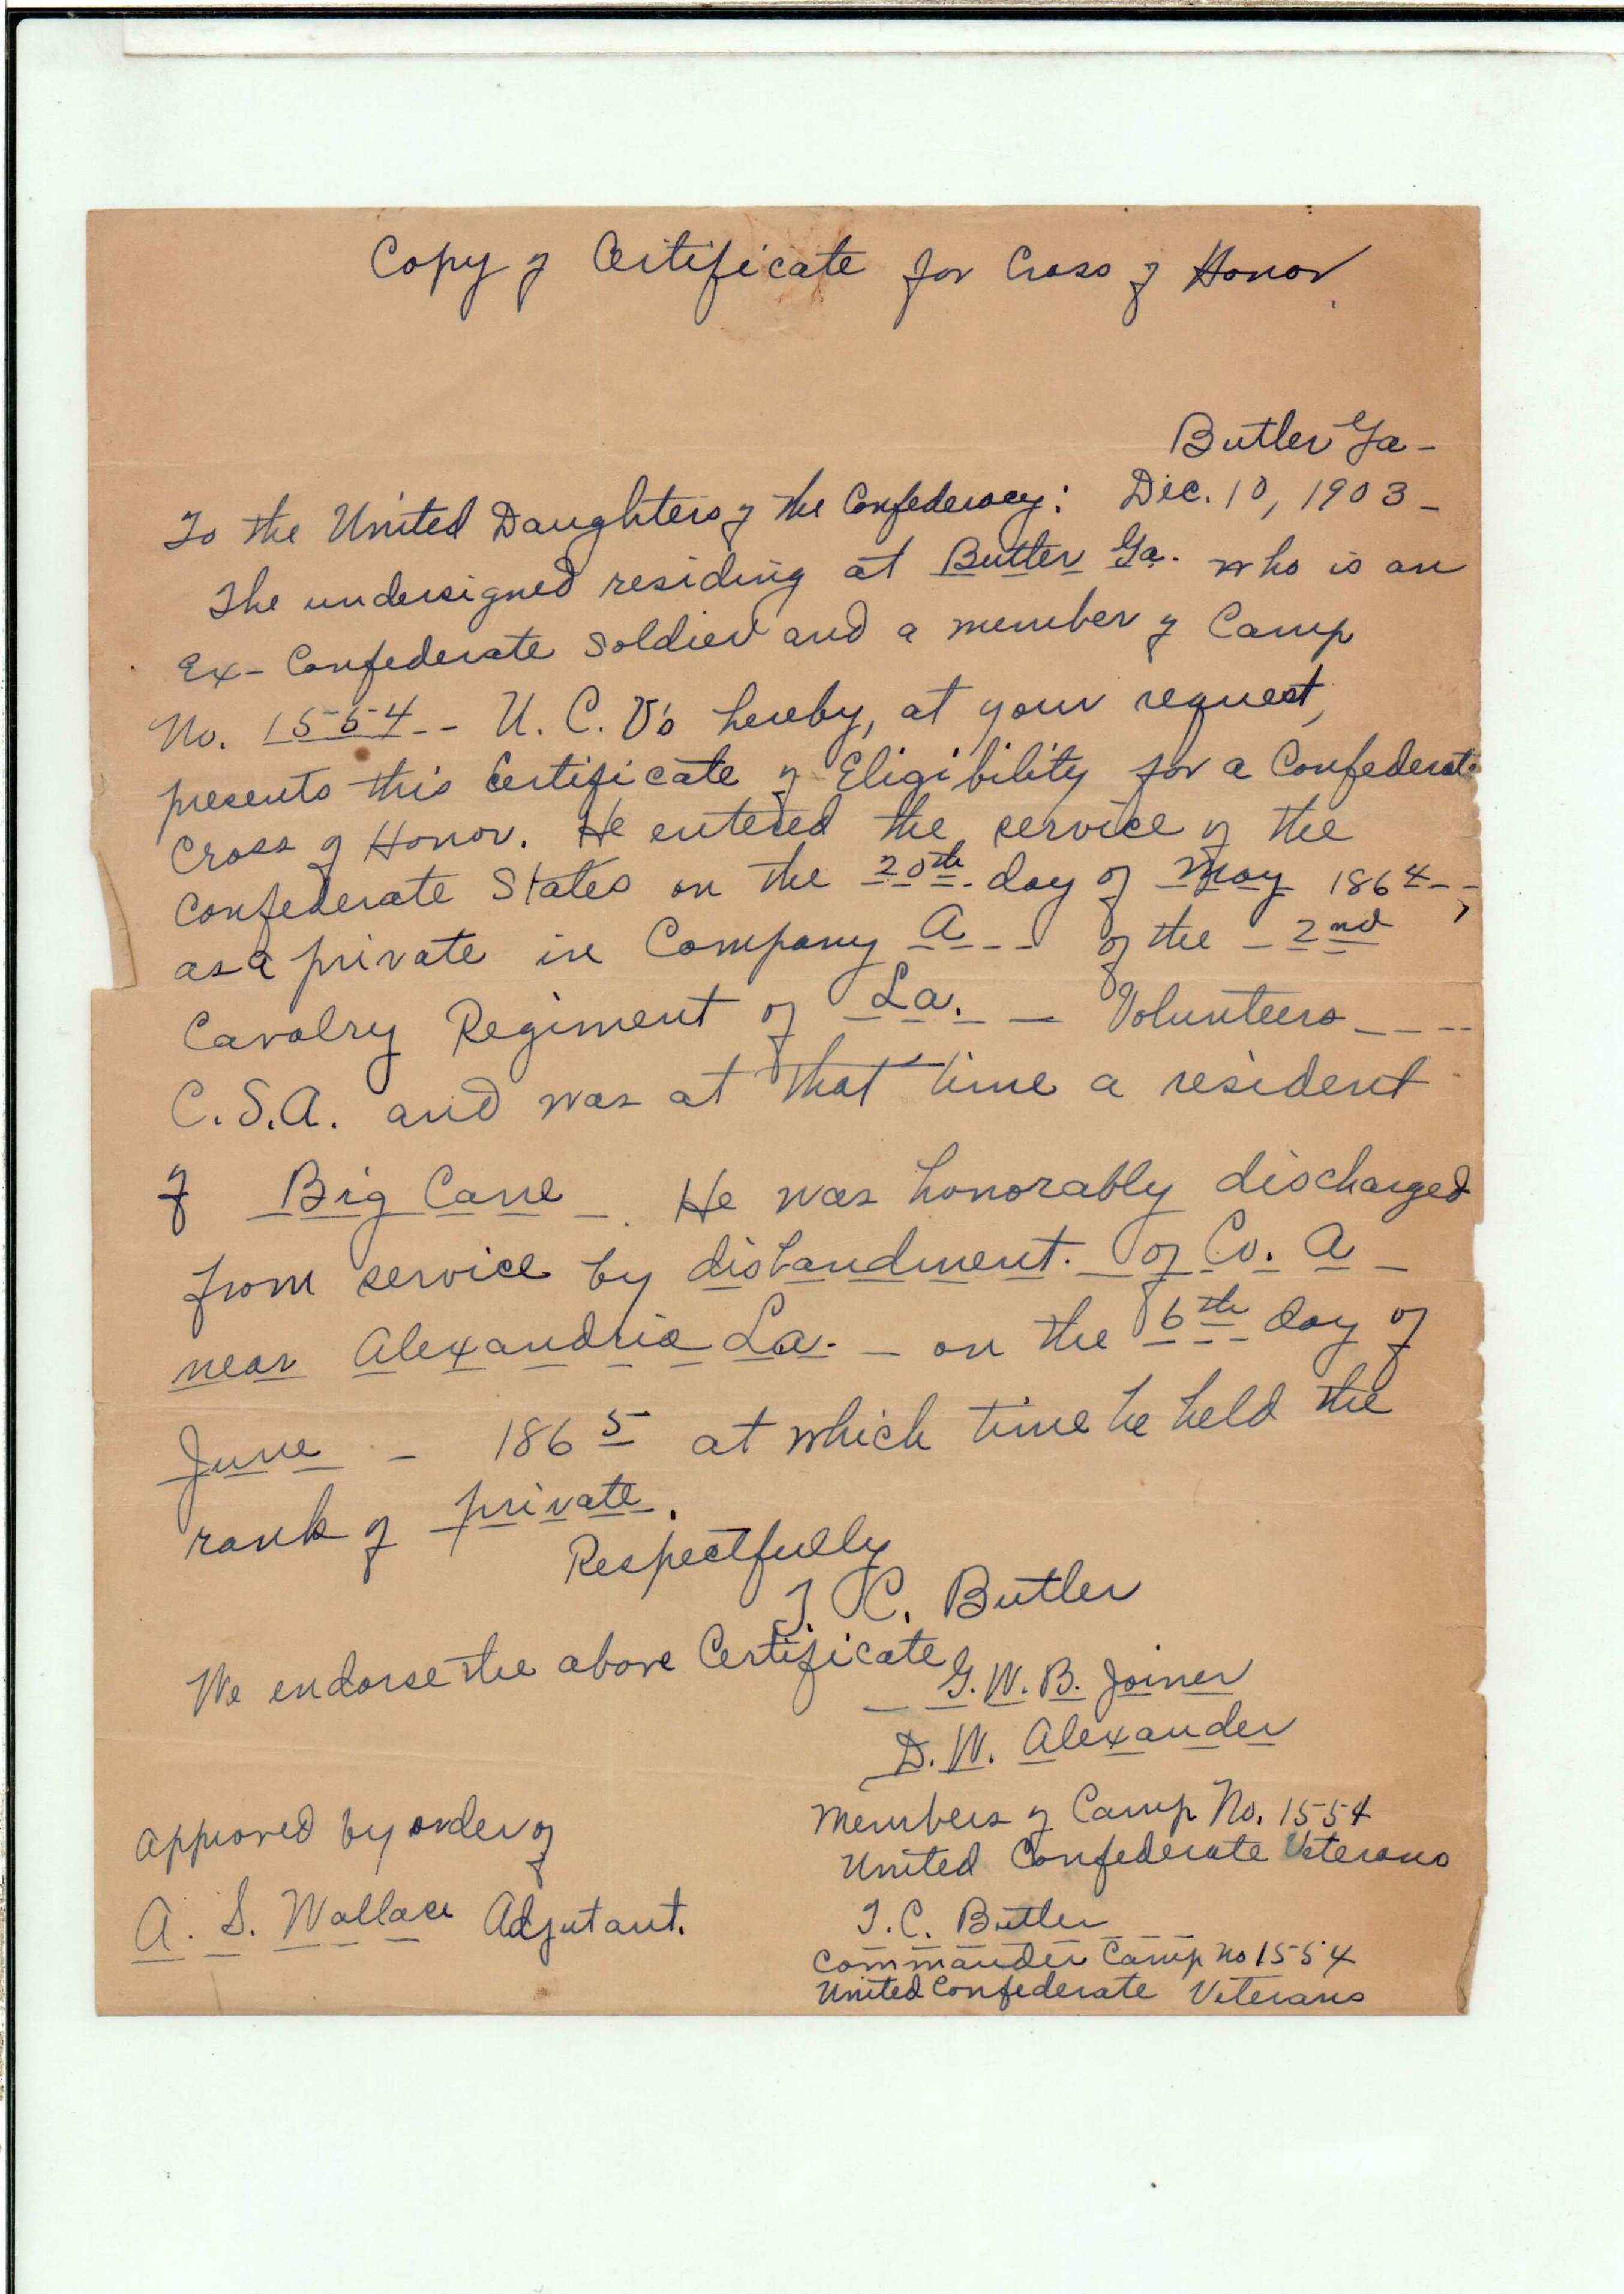 Copy of Certificate for Cross of Honor
Butler Ga-
To the United Daughters of the Confederacy: Dec. 10, 1903-
The undersigned residing at Butler Ga. who is an
Ex-Confederate soldier and a member of Camp
No. 1554-- U. C. V's hereby, at your request,
presents this Certificate of Eligibility for a Confederate
Cross of Honor. He entered the service of the
Confederate States on the 20th day of May 1864--,
as a private in Company A-- of the - 2nd
Cavalry Regiment of La. - Volunteers----
C.S.A. and was at that time a resident
of Big Cane -. He was honorably discharged
from service by disbandment. of Co. A -
near Alexandria La. - on the 6th day of
June - 1865 at which time he held the
rank of private.
Respectfully
T. C. Butler
We endorse the above Certificate
G. W. B. Joiner
D. W. Alexander
Members of Camp No. 1554
United Confederate Veterans
approved by order of
A. S. Wallace Adjutant.
T. C. Butler
Commander Camp No 1554
United Confederate Veterans